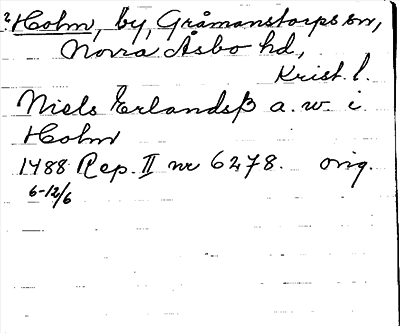 ? Holm, by, Gråmanstorps sn,
Norra Åsbo hd,
Krist. l.
Niels Erlandsß a. w. i
Holm
1488 Rep. II nr 6278. orig.
6-12/6